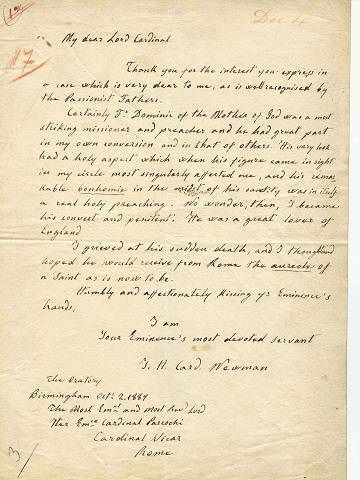 1a
Doc 4
17
My dear Lord Cardinal
Thank you for the interest you express in
a case which is very dear to me, as is well recognised by
the Passionist Fathers.
Certainly Fr. Dominic of the Mother of God was a most
striking missioner and preacher and he had great part
in my own conversion and in that of others. His very look
had a holy aspect which when his figure came in sight
in my circle most singularly affected me, and his remar
kable bonhomie in the midst of his sanctity was in itself
a real holy preaching. No wonder, then, I became
his convert and penitent. He was a great lover of
England
I grieved at his sudden death, and I thought and
hoped he would receive from Rome the aureole of
a Saint as is now to be.
Humbly and affectionately kissing yr Eminence's
hands,
I am
Your Eminence's most devoted servant
J. H. Card. Newman
The Oratory
Birmingham Oct. 2. 1889
The Most Emt and Most Rev Lord
Her Emce Cardinal Parocchi
Cardinal Vicar
Rome
3/